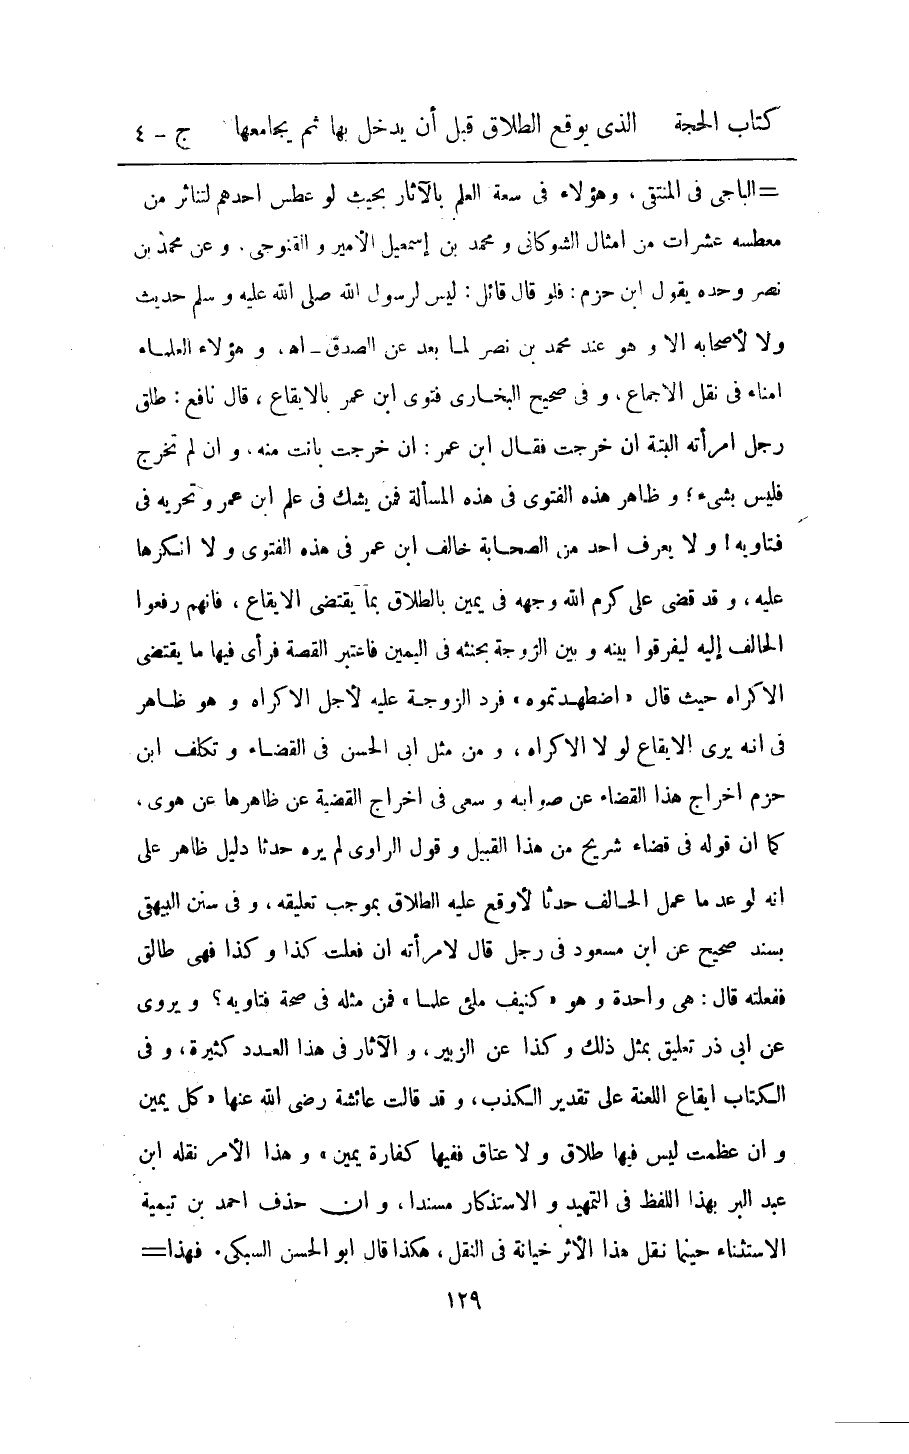 كتاب الحجة الذى يوقع الطلاق قبل أن يدخل بها ثم يجامعها ج - ٤
= الباجى فى المنتقى ، وهؤلاء فى سعة العلم بالآثار بحيث لو عطس احدهم لتناثر من
معطسه عشرات من امثال الشوكانى و محمد بن إسمعيل الأمير و القنوجى . و عن محمد بن
نصر وحده يقول ابن حزم : فلو قال قائل : ليس لرسول الله صلى الله عليه و سلم حديث
ولا لأصحابه الا و هو عند محمد بن نصر لما بعد عن الصدق - اه ، و هؤلاء العلماء
امناء فى نقل الاجماع ، و فى صحيح البخارى فتوى ابن عمر بالايقاع ، قال نافع : طلق
رجل امرأته البتة ان خرجت فقال ابن عمر : ان خرجت بانت منه ، و ان لم تخرج
فليس بشىء ؛ و ظاهر هذه الفتوى فى هذه المسألة فمن يشك فى علم ابن عمر و تحريه فى
فتاويه ! و لا يعرف احد من الصحابة خالف ابن عمر فى هذه الفتوى و لا انكرها
عليه ، و قد قضى على كرم الله وجهه فى يمين بالطلاق بما يقتضى الايقاع ، فانهم رفعوا
الحالف إليه ليفرقوا بينه و بين الزوجة بحنثه فى اليمين فاعتبر القصة فرأى فيها ما يقتضى
الاكراه حيث قال « اضطهدتموه » فرد الزوجة عليه لأجل الاكراه و هو ظاهر
فى انه يرى الايقاع لو لا الاكراه ، و من مثل ابى الحسن فى القضاء و تكلف ابن
حزم اخراج هذا القضاء عن صوابه و سعى فى اخراج القضية عن ظاهرها عن هوى ،
كما ان قوله فى قضاء شريح من هذا القبيل و قول الراوى لم يره حدثا دليل ظاهر على
انه لو عد ما عمل الحالف حدثا لأوقع عليه الطلاق بموجب تعليقه ، و فى سنن البيهقى
بسند صحيح عن ابن مسعود فى رجل قال لامرأته ان فعلت كذا و كذا فهى طالق
ففعلته قال : هى واحدة و هو « كنيف ملئ علما » فمن مثله فى صحة فتاويه ؟ و يروى
عن ابى ذر تعليق بمثل ذلك و كذا عن الزبير ، و الآثار فى هذا العدد كثيرة ، و فى
الكتاب ايقاع اللعنة على تقدير الكذب ، و قد قالت عائشة رضى الله عنها « كل يمين
و ان عظمت ليس فيها طلاق و لا عتاق ففيها كفارة يمين » و هذا الأمر نقله ابن
عبد البر بهذا اللفظ فى التمهيد و الاستذكار مسندا ، و ان حذف احمد بن تيمية
الاستثناء حينما نقل هذا الأثر خيانة فى النقل ، هكذا قال ابو الحسن السبكى . فهذا =
١٢٩